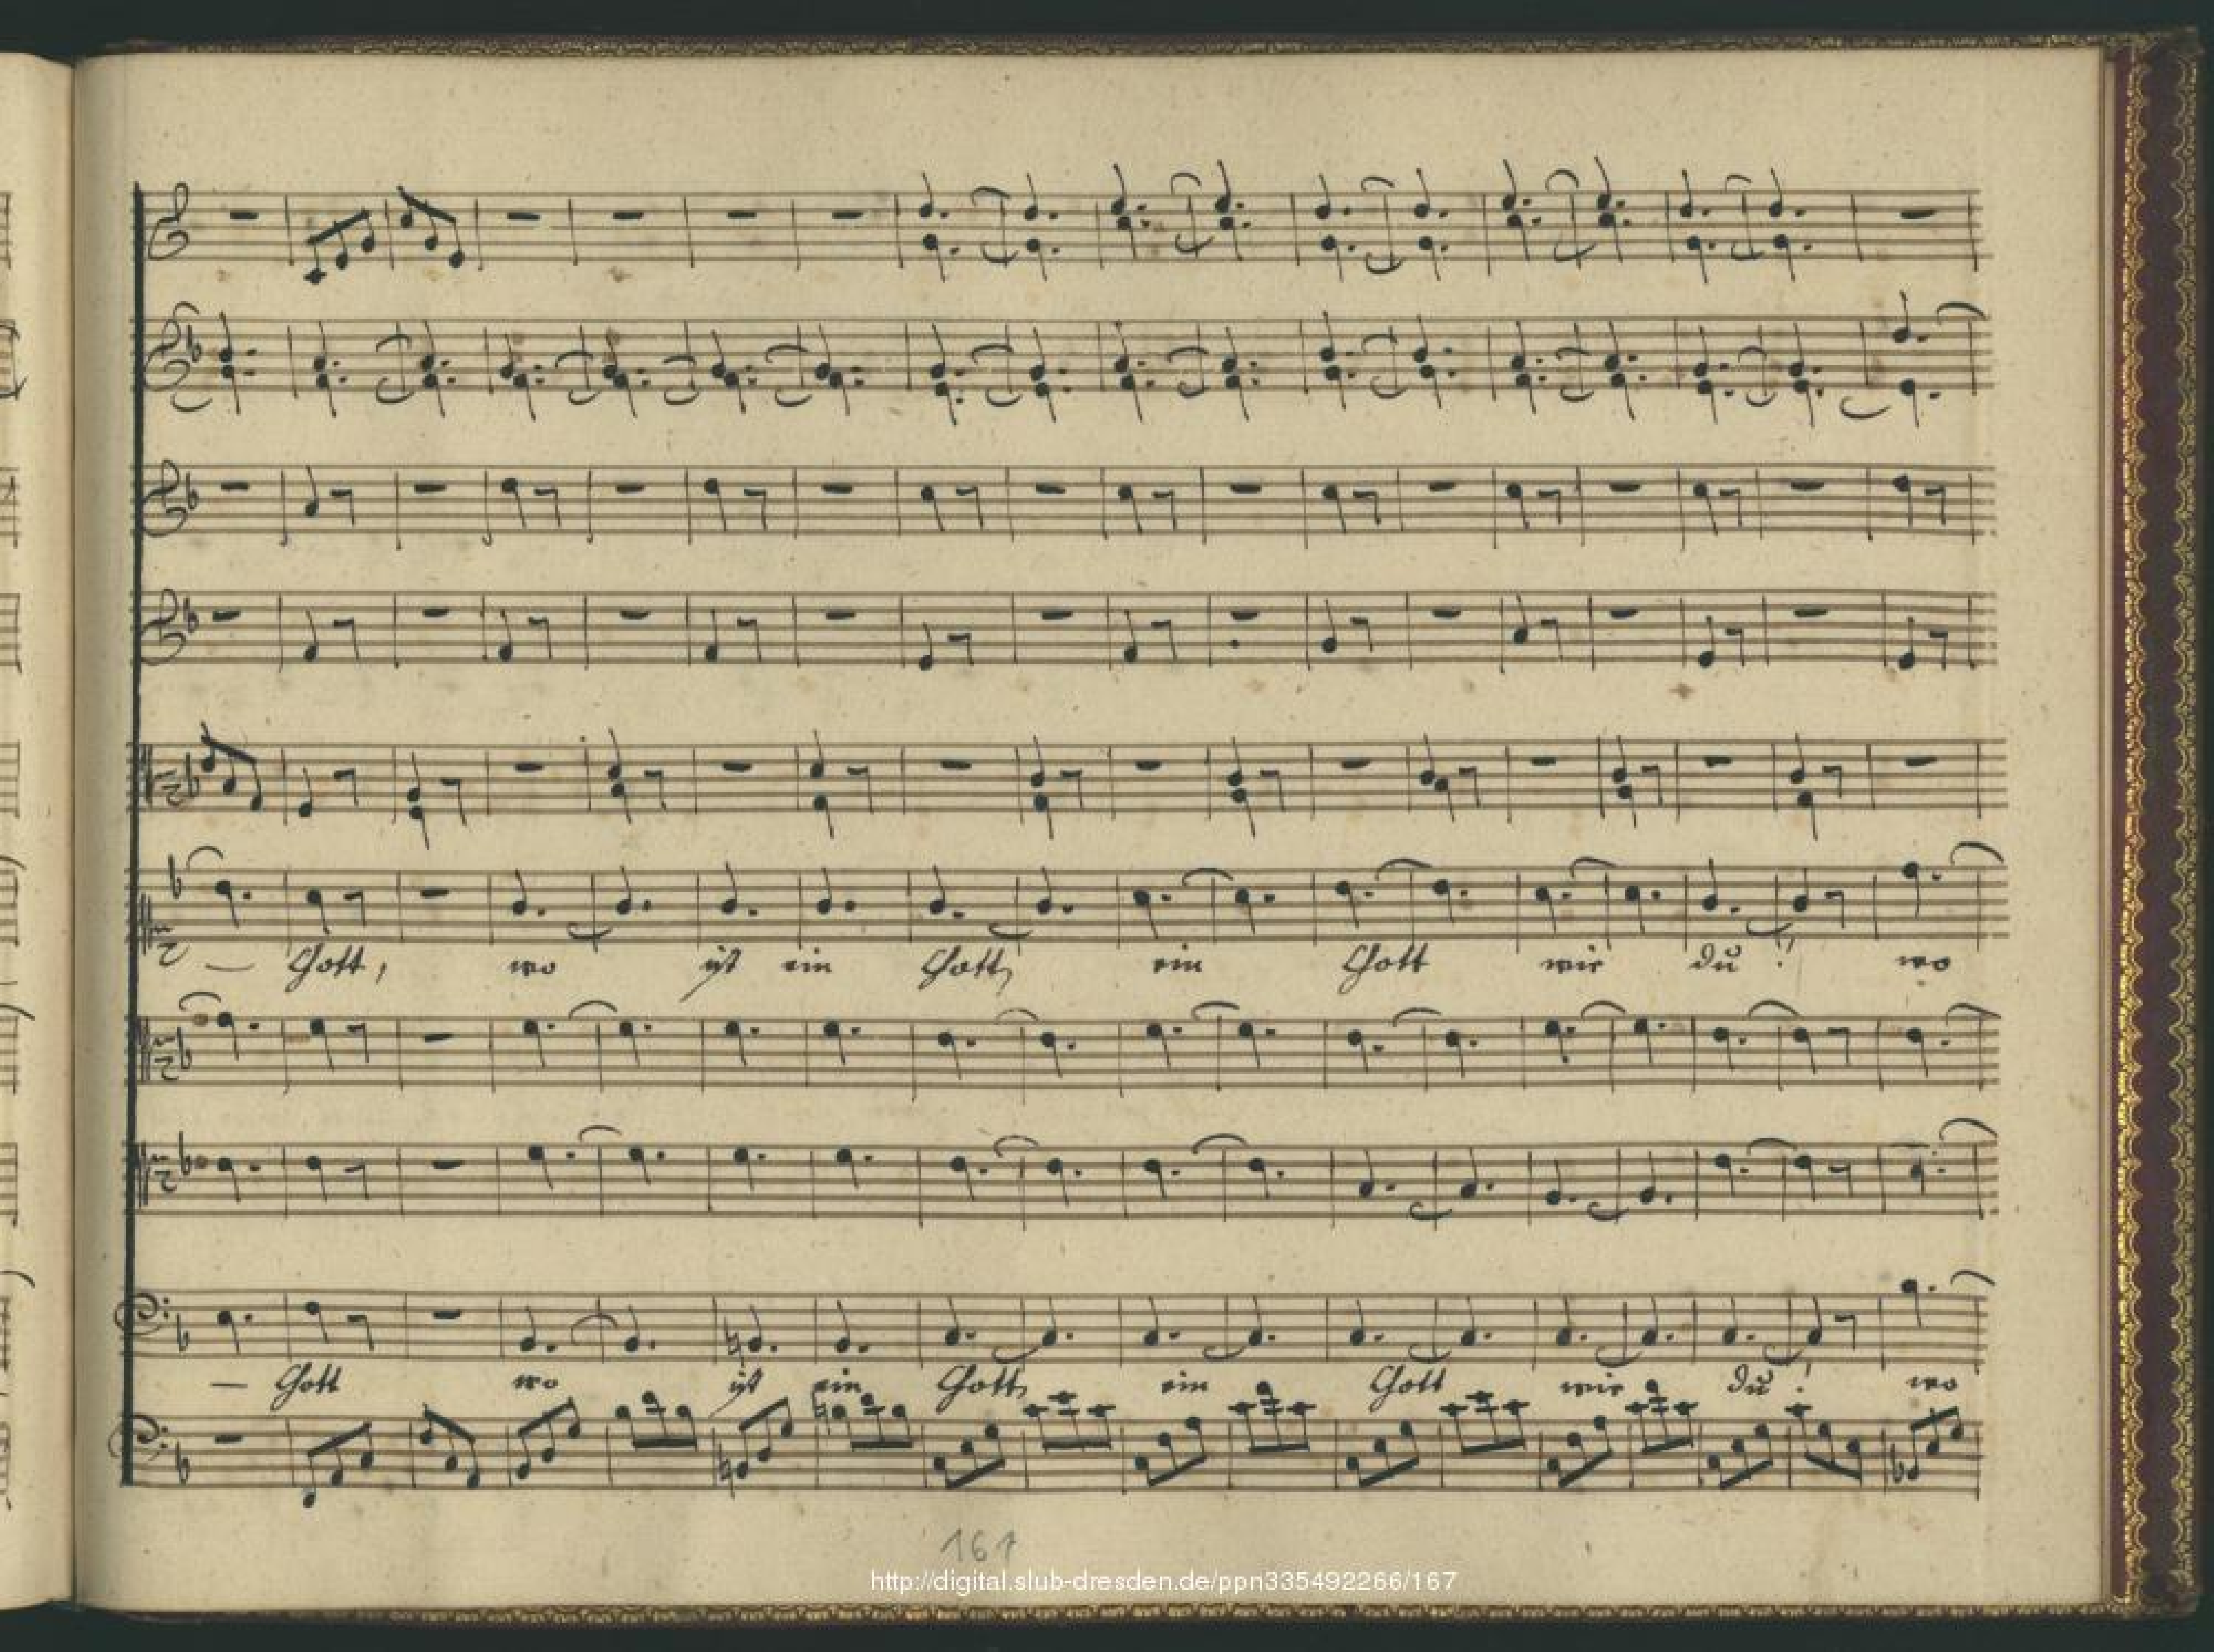 — Gott, wo ist ein Gott, ein Gott wie du! wo
— Gott wo ist ein Gott, ein Gott wie du! wo
167
http://digital.slub-dresden.de/ppn335492266/167